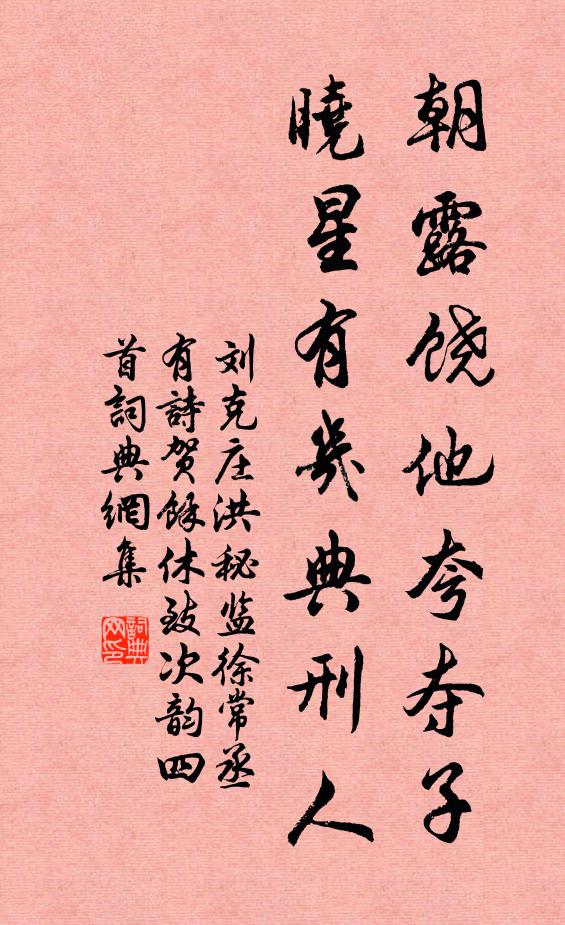 朝露饶他夸夺子
曉星有幾典刑人
刘克庄洪秘监徐常丞
有詩贺餘休致次韵四
首詞典網集
詞典网印